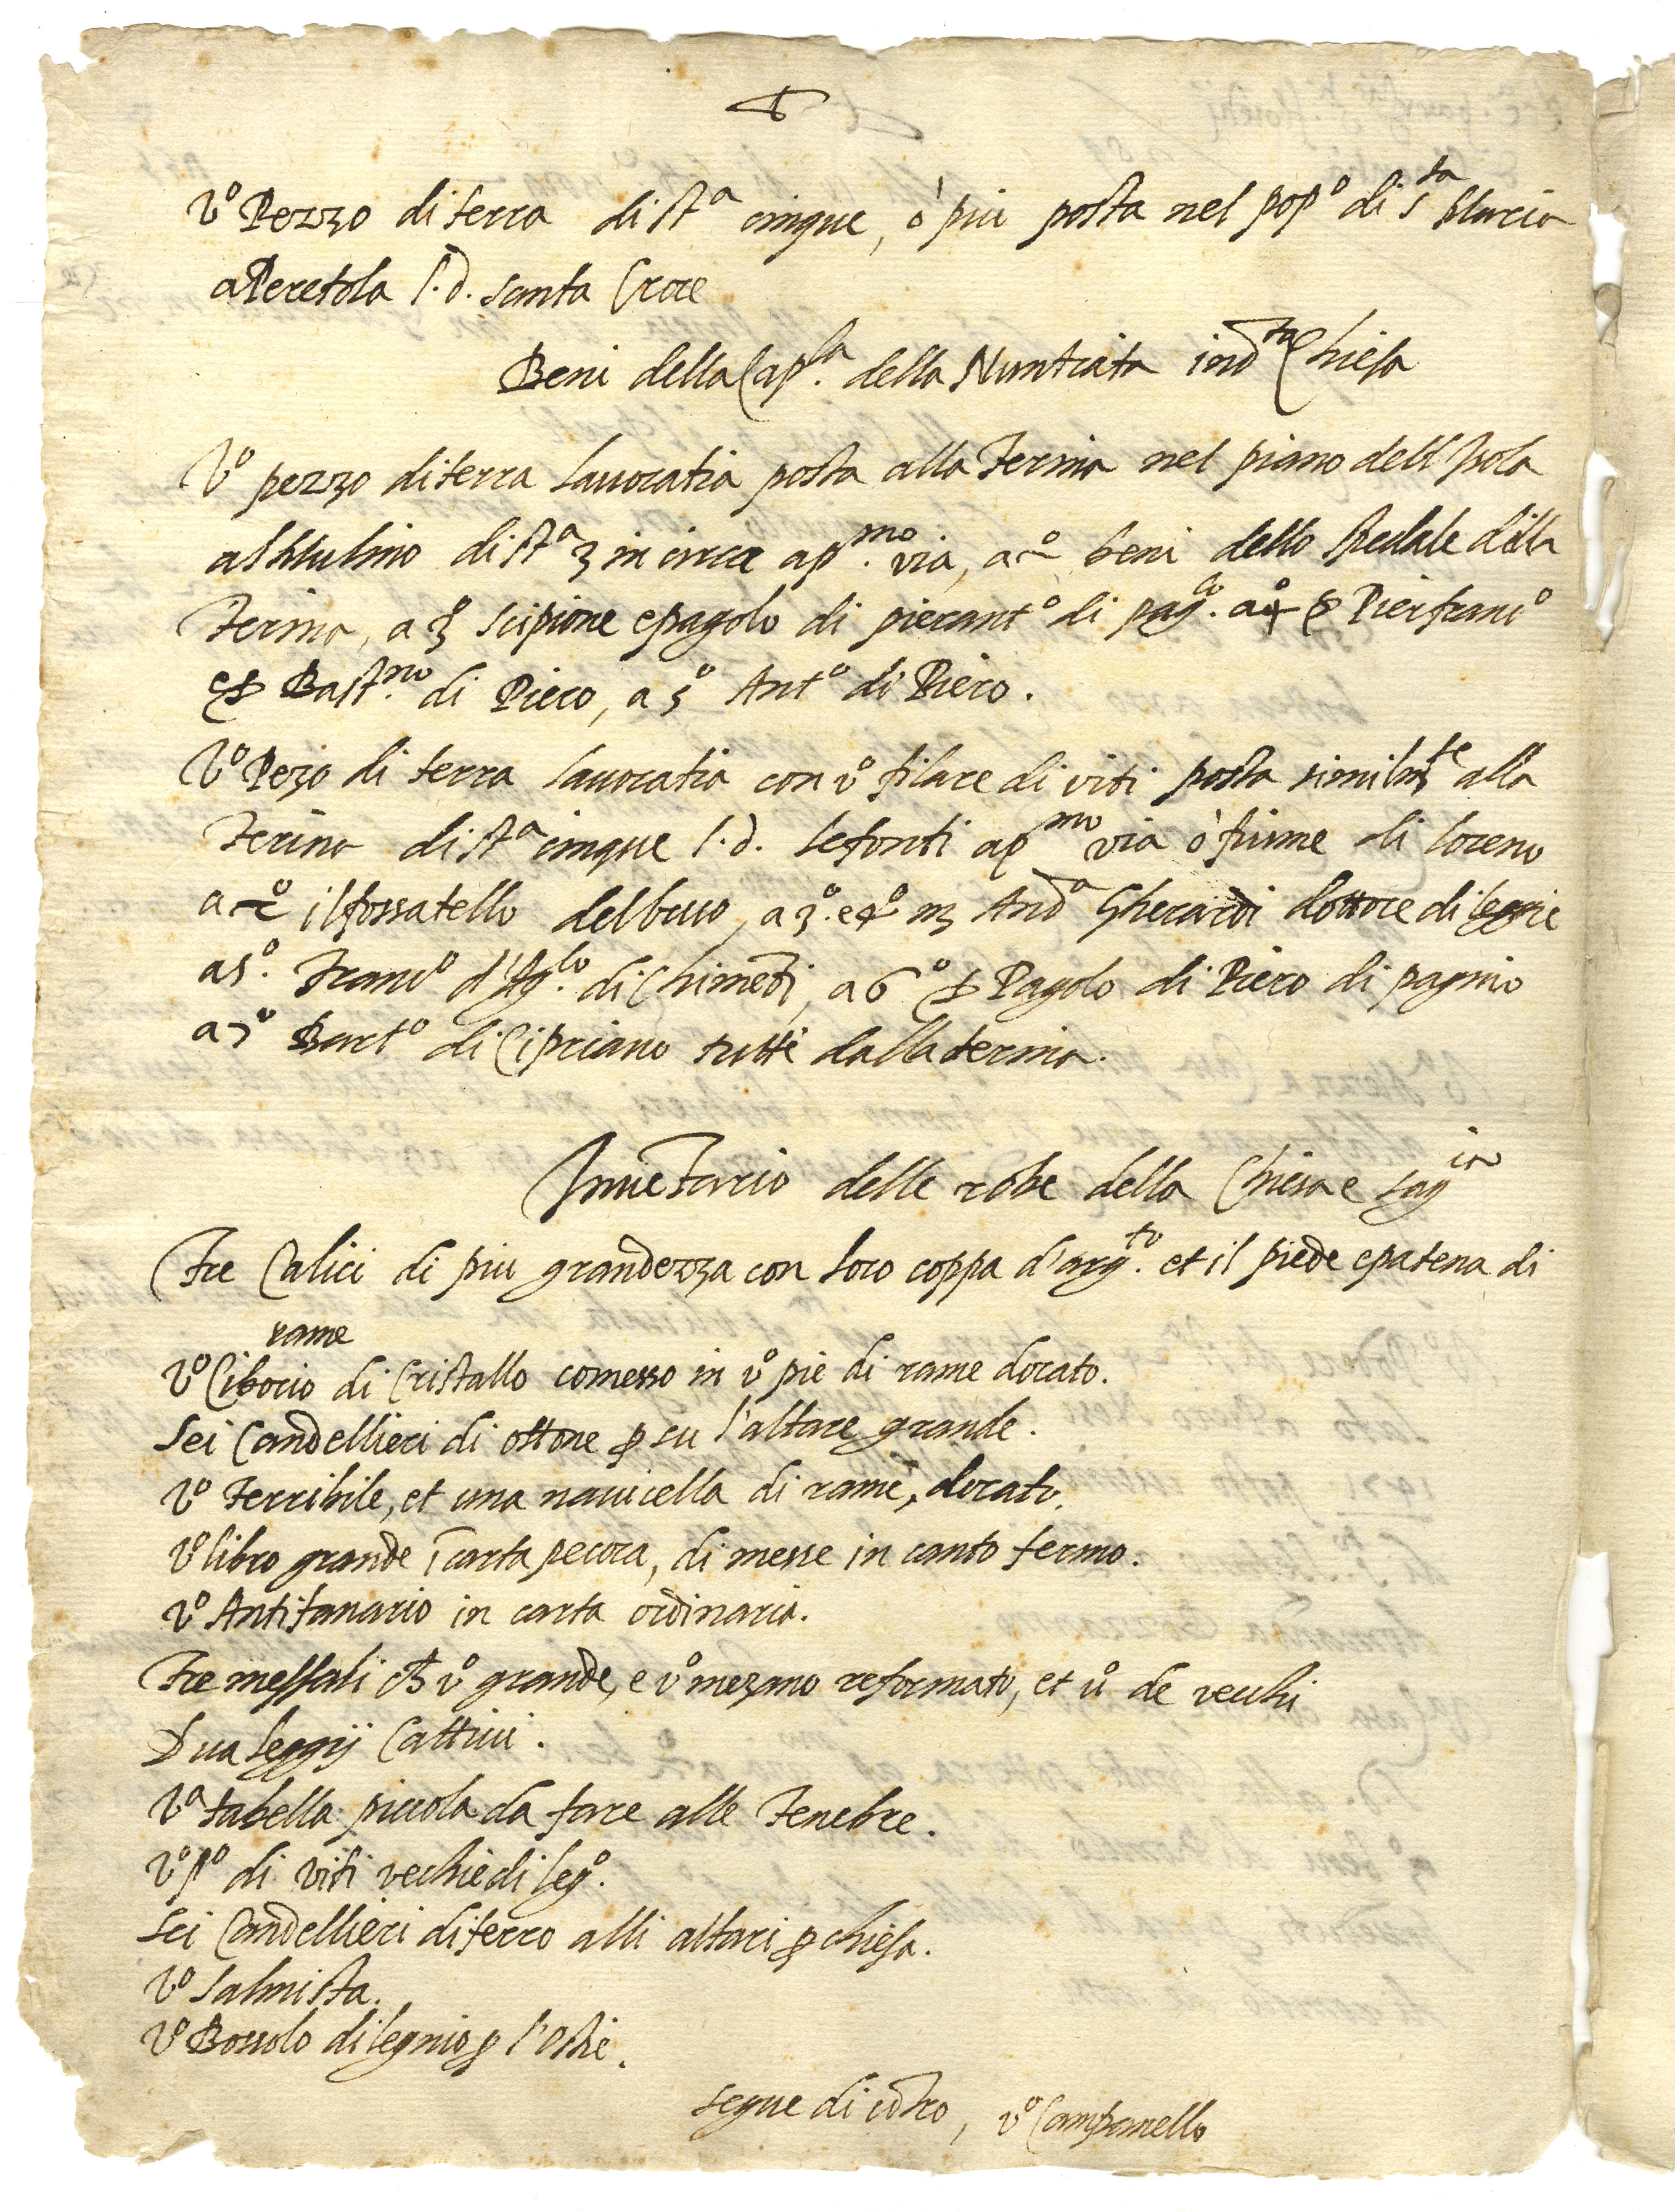 Vº Pezzo di terra di stª cinque, ò piu posta nel popº di Sta Maria
a Peretola l.d. santa Croce
Beni della Capla della Nuntiata in dta Chiesa
Vº pezzo di terra lauoratia posta alla Ferina nel piano dell Isola
al Mulino di stª 3 in circa a pmo via, a 2º beni dello spedale della
Ferina, a 3º Scipione e pagolo di pierantº di pagolo. a 4º Pierfrancº
et Bastno di Piero, a 5º Antº di Piero.
Vº Pezo di terra lauoratia con vº filare di viti posta similmte alla
Ferina di stª cinque l.d. le fonti a pmo via ò fiume di loreno
a 2º il fossatello del buco, a 3º. e 4º m Andª Gherardi dottore di leggie
a 5º. Francº d'Aglo. di Chimeti, a 6º Pagolo di Piero di pagnio
a 7º Bartº di Cipriano tutti dalla ferina.
Inuetario delle robe della Chiesa e sagia
Tre Calici di piu grandezza con loro coppa d'argto. et il piede e patena di
rame
Vº Ciborio di Cristallo comesso in vº pie di rame dorato.
Sei Candellieri di ottone p su l'altare grande.
Vº Terribile, et una nauicella di rame, dorato.
Vº libro grande ī carta pecora, di messe in canto fermo.
Vº Antifanario in carta ordinaria.
Tre messali vº grande, e vº mezano reformato, et uº de vecchi
Dua leggij Cattiui.
Vª tabella piccola da fare alle Tenebre.
Vº pº di viti vechie di legº.
Sei Candellieri di ferro alli altari p chiesa.
Vº Salmista.
Vº Bossolo di legnio p l'Ostie.
segue di cōtro, vº Campanello